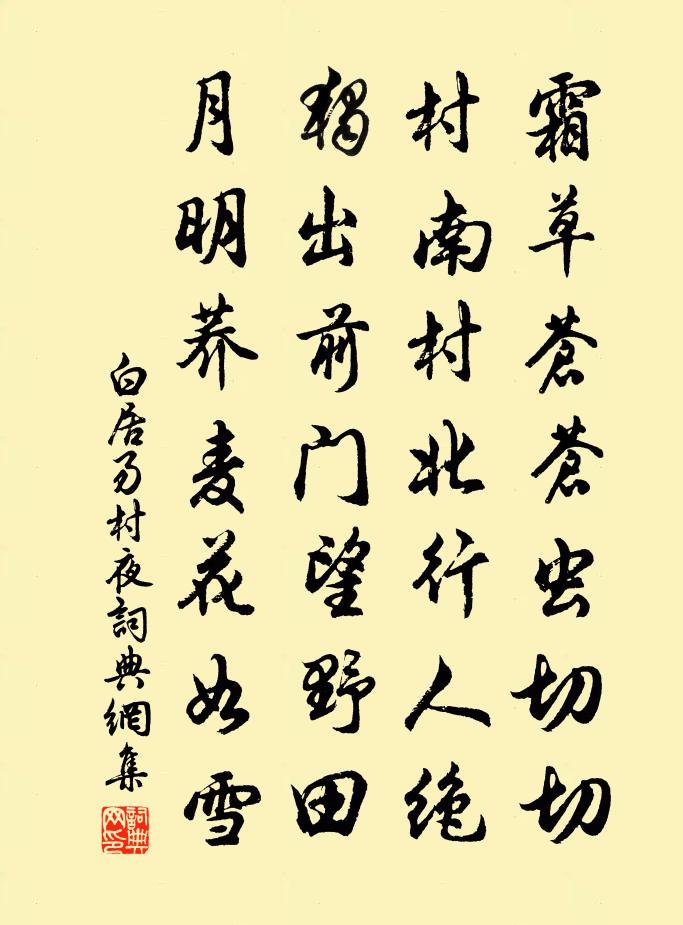 霜草蒼蒼虫切切
村南村北行人绝
独出前门望野田
月明荞麦花如雪
白居易村夜詞典網集
詞典网印